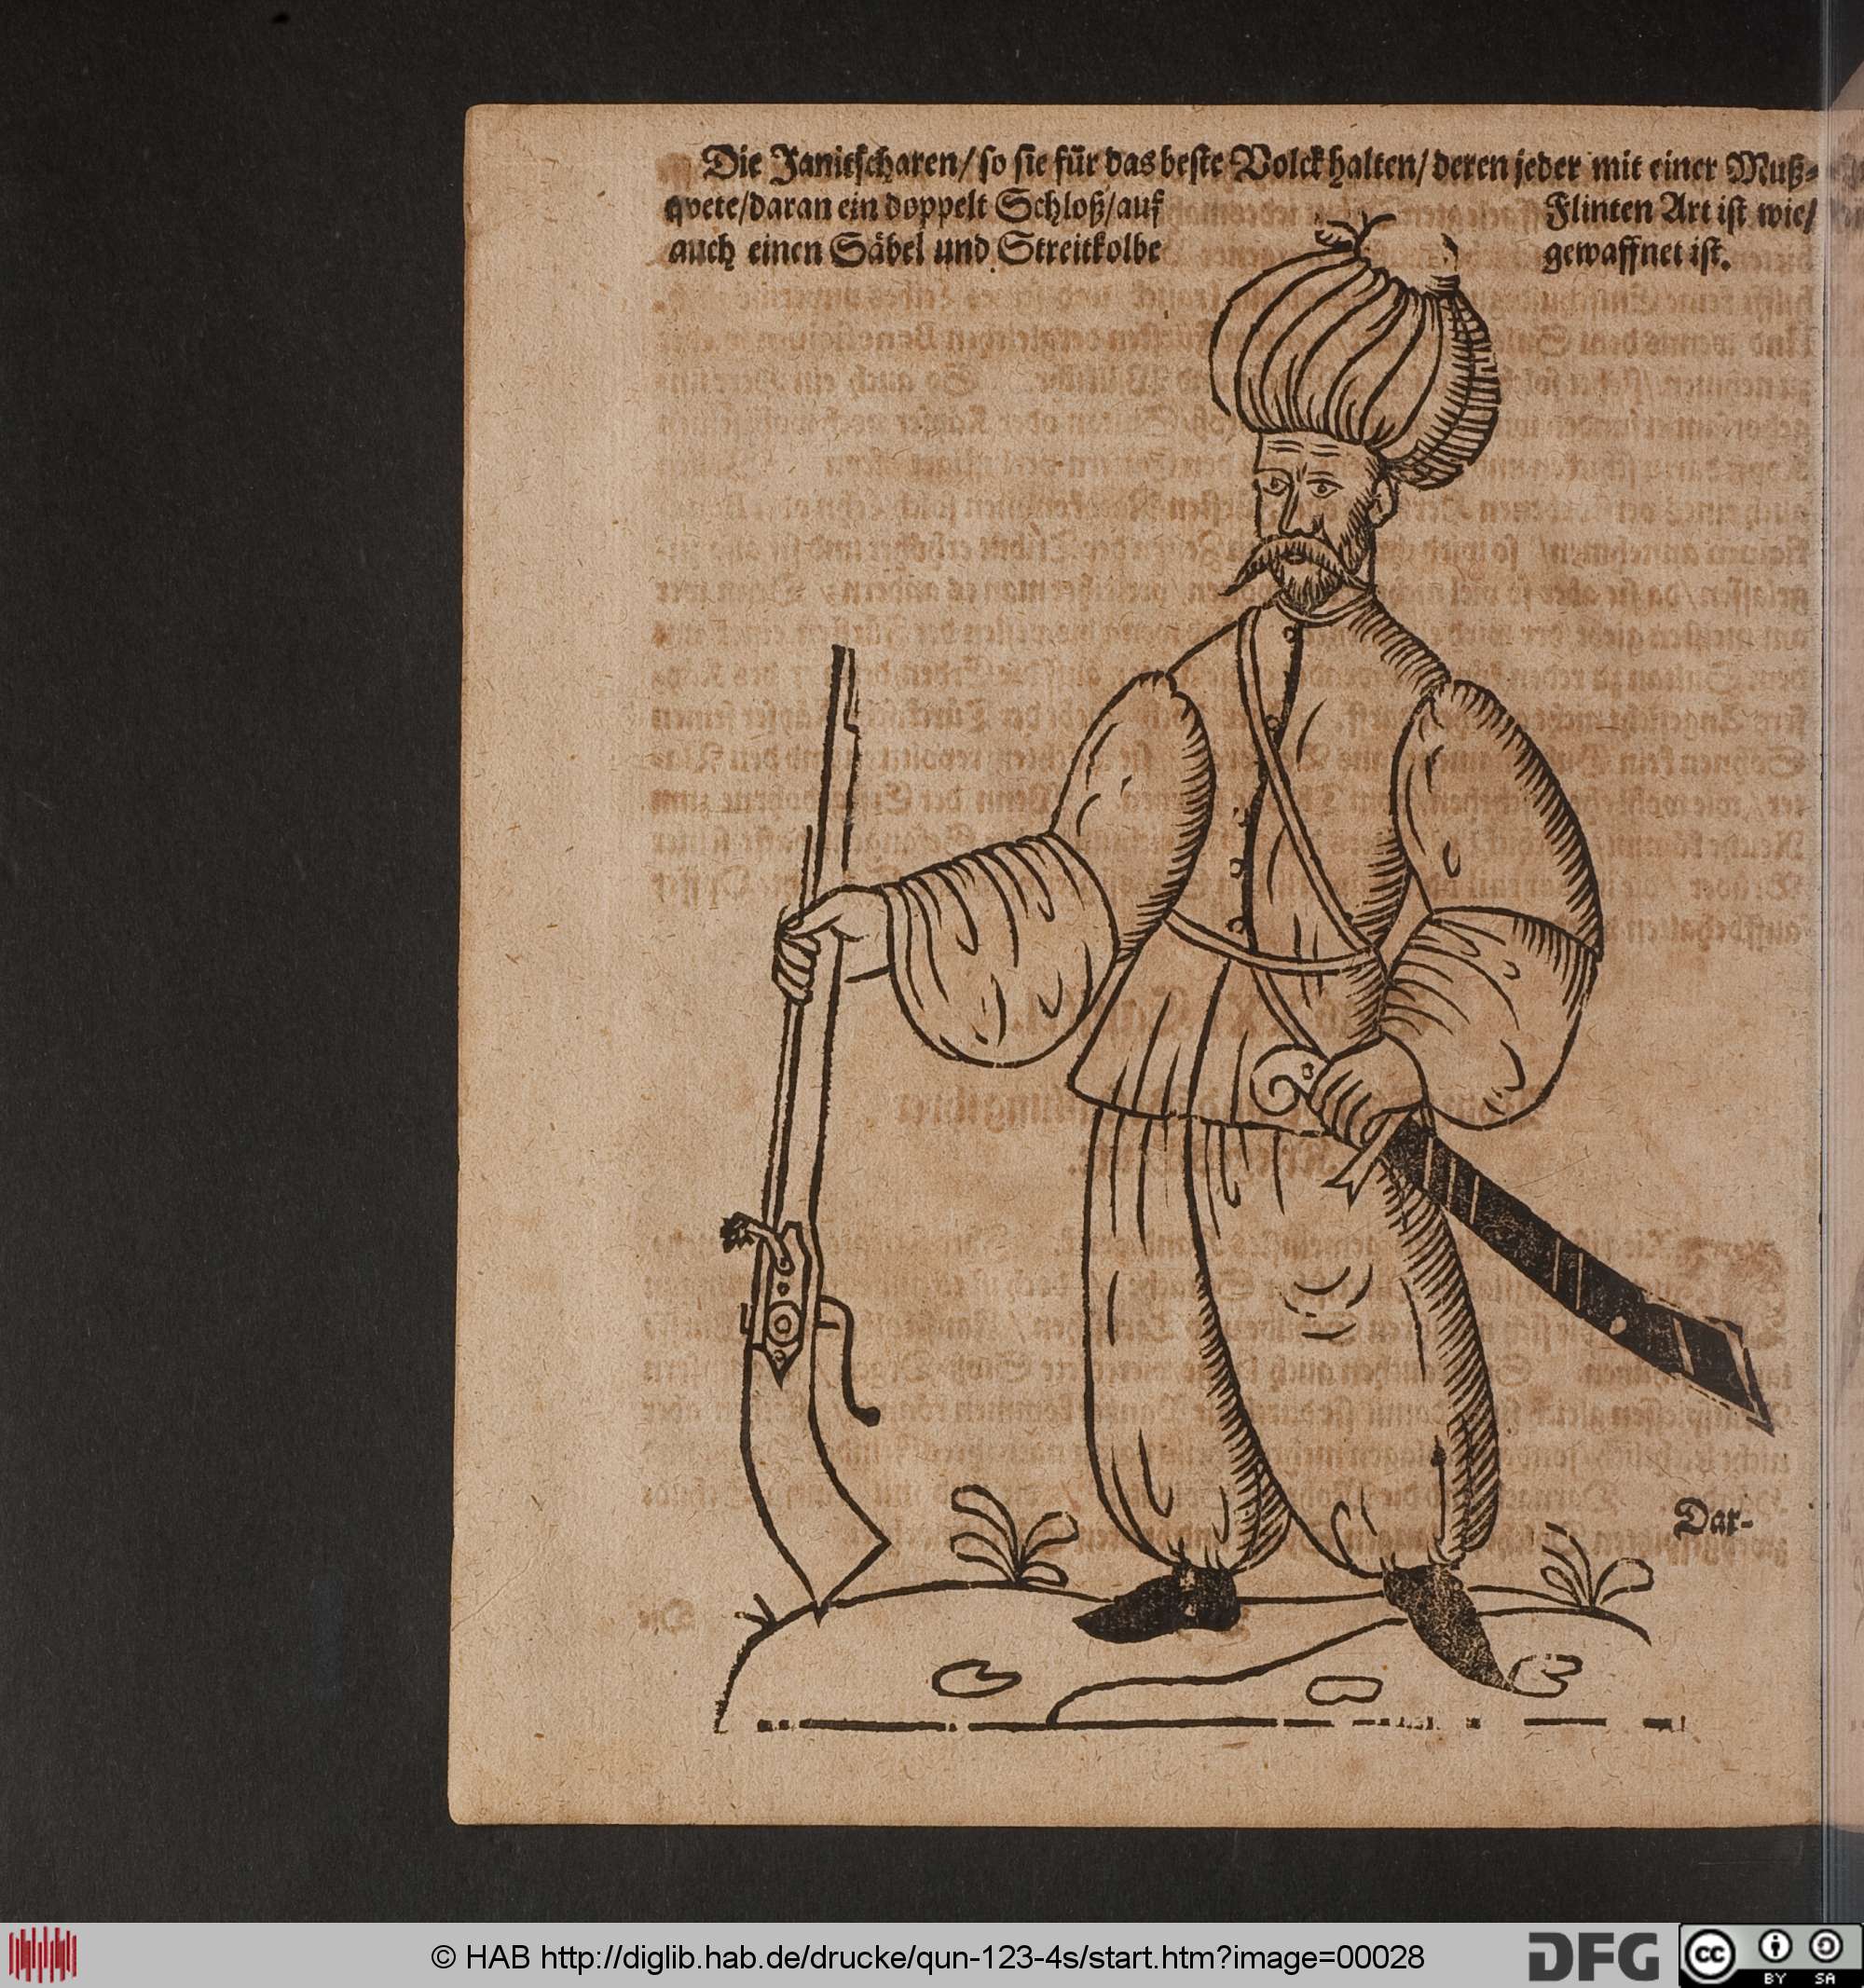 Die Janitscharen/ so sie für das beste Volck halten/ deren jeder mit einer Muß-
qvete/daran ein doppelt Schloß/auf Flinten Art ist wie/
auch einen Säbel und Streitkolbe gewaffnet ist.
Dar-
© HAB http://diglib.hab.de/drucke/qun-123-4s/start.htm?image=00028
DFG
cc
BY SA